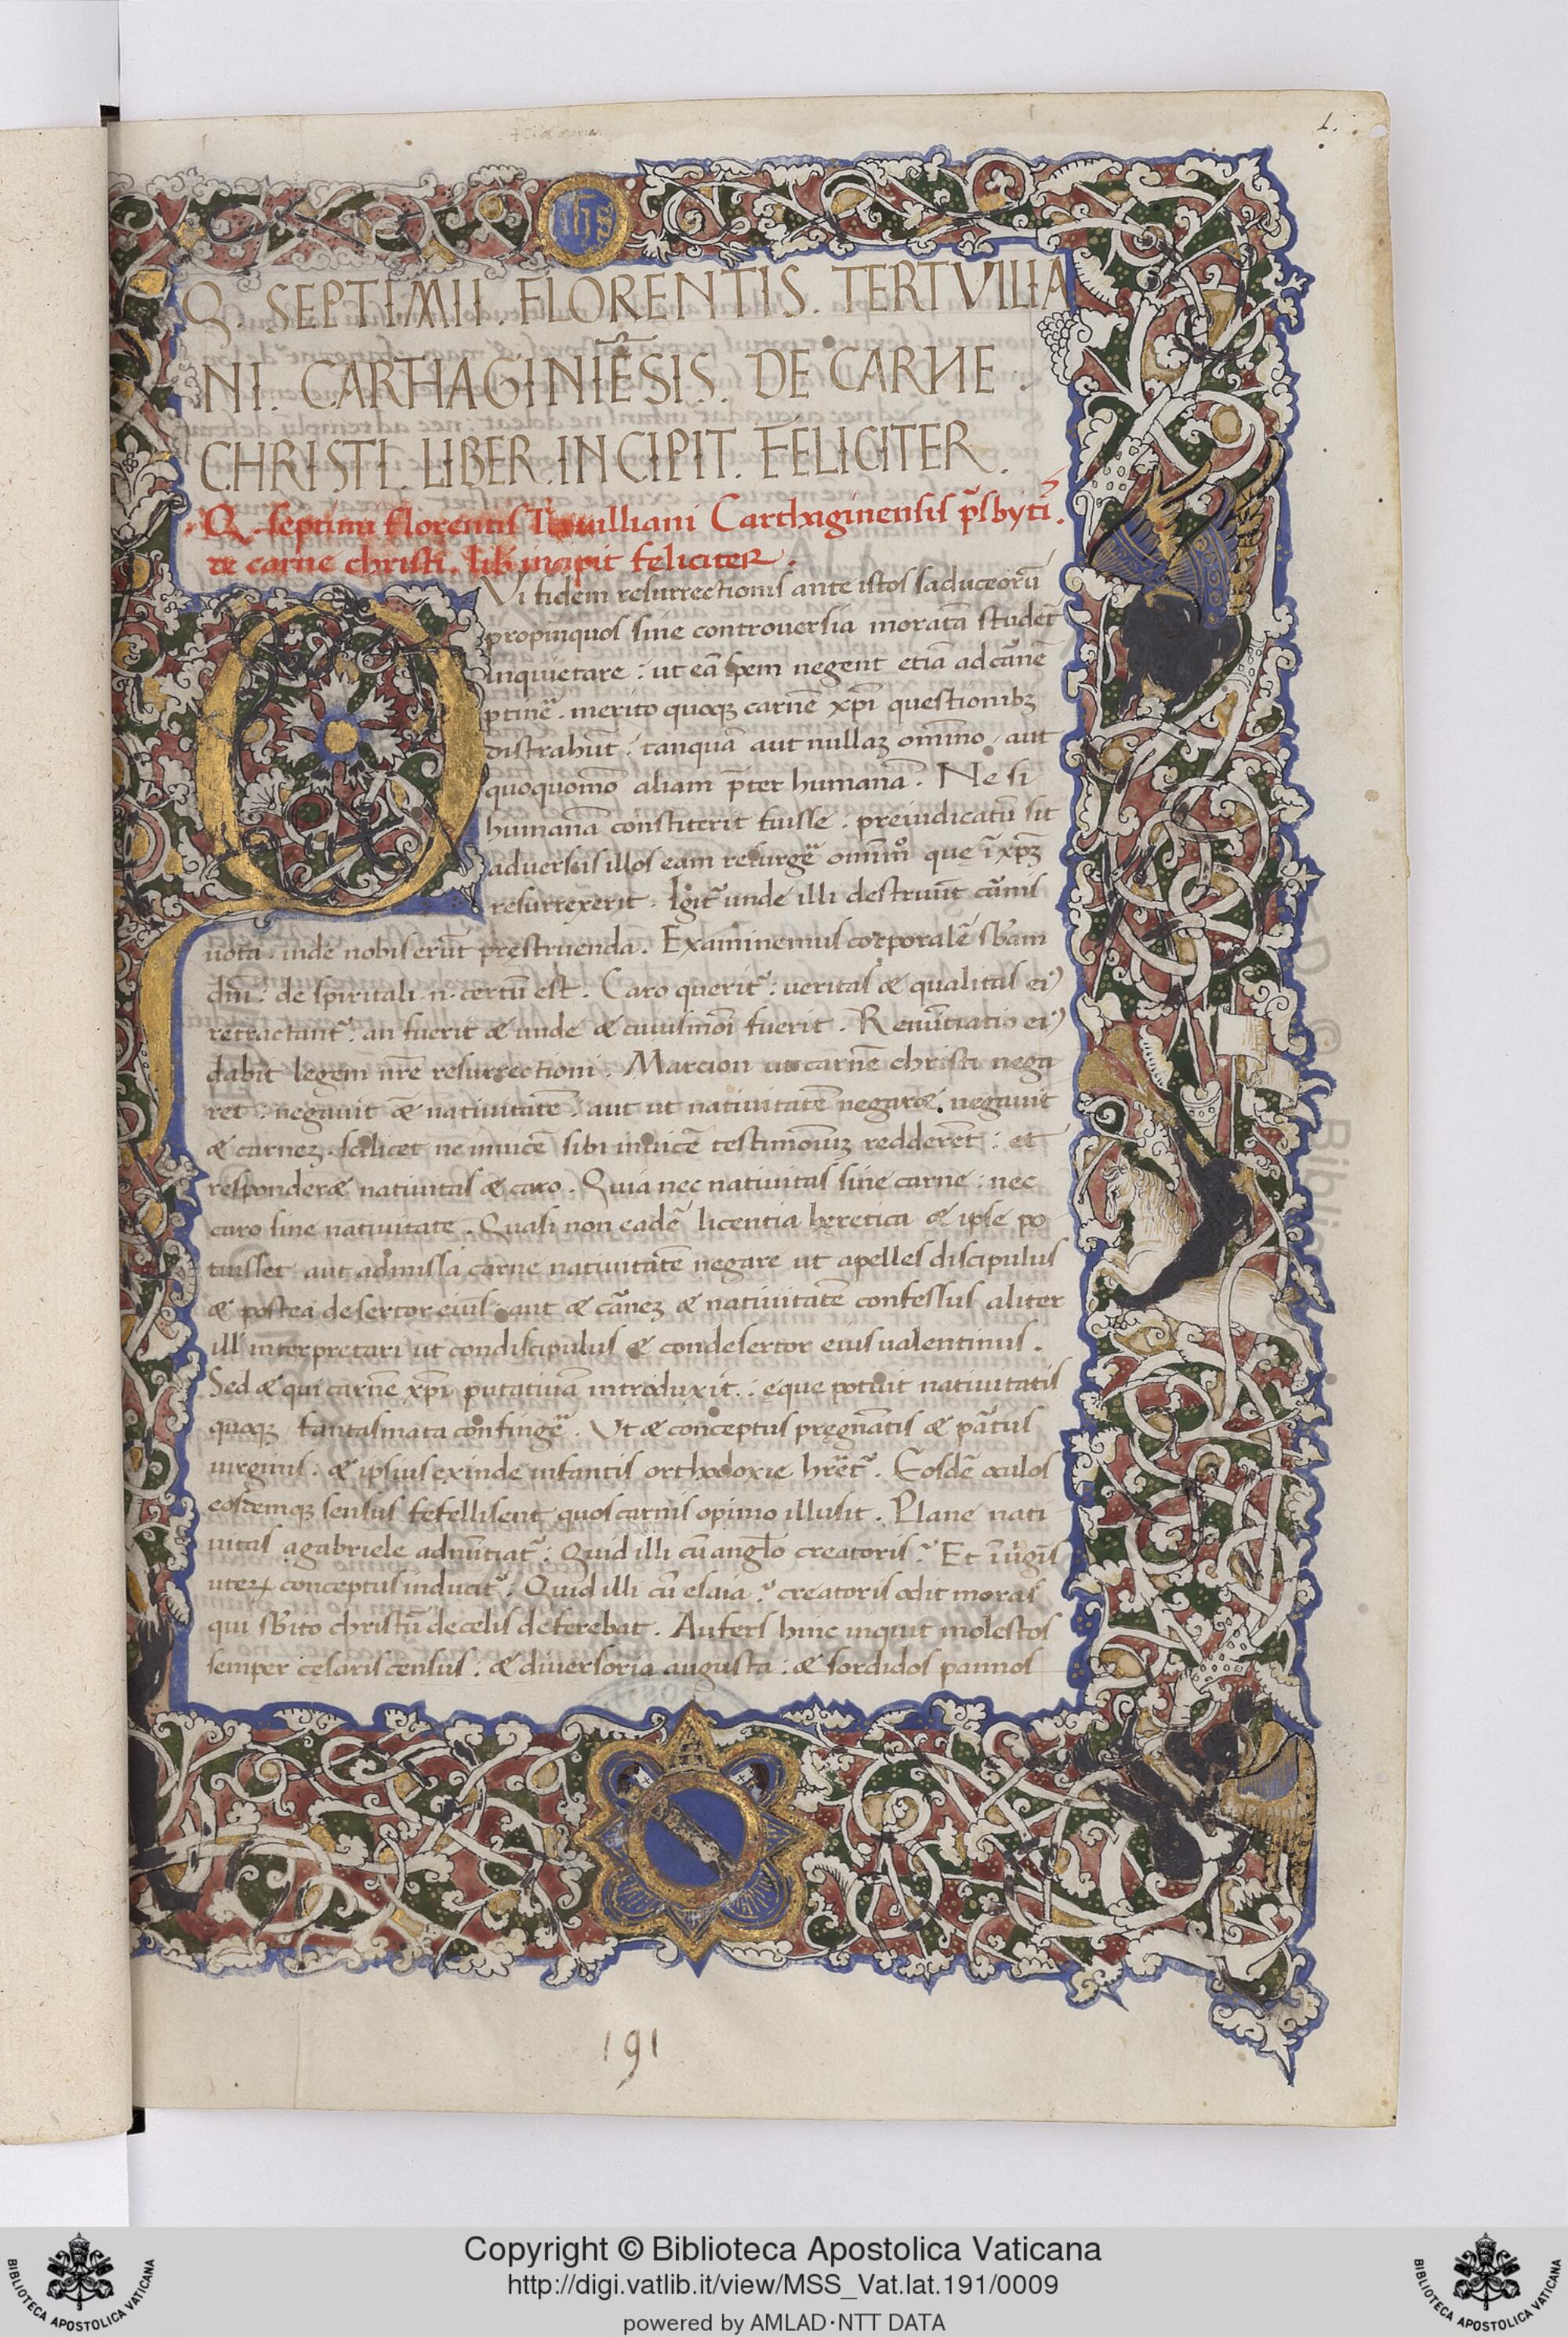 1.
Q. SEPTIMII. FLORENTIS. TERTVLLIA
NI. CARTHAGINIẼSIS. DE CARNE.
CHRISTI. LIBER. INCIPIT. FELICITER.
Q. septimii florentis Tertulliani Carthaginensis p̃sbyti.
de carne christi. lib incipit feliciter.
Vi fidem resurrectionis ante istos saduceorũ
propinquos sine controuersia moratã studẽt
inquietare: ut eã spem negent etiã ad carnẽ
ptinẽ. merito quoqꝫ carnẽ xp̃i questionibꝫ
distrahũt: tanquã aut nullaꝫ omĩno, aut
quoquomõ aliam p̃ter humanã. Ne si
humanã constiterit fuisse. preiudicatũ sit
aduersus illos eam resurgẽ omnĩo quę ĩ xp̃o
resurrexerit. Igit̃ unde illi destruũt carnis
uota. inde nobis erũt pręstruenda. Examinemus corporalẽ sb̃am
dñi: de spiritali .n. certũ est. Caro querit̃: ueritas & qualitas ei᾿
retractant̃. an fuerit & unde & cuiusmõi fuerit. Renũtiatio ei᾿
dabit legem nr̃e resurrectioni. Marcion ut carnẽ christi nega
ret: negauit & natiuitatẽ: aut ut natiuitatẽ negaret. negauit
& carneꝫ. scilicet ne inuicẽ sibi inuicẽ testimoniũ redderẽt: et
responderet natiuitas & caro. Quia nec natiuitas sine carne: nec
caro sine natiuitate. Quasi non eadẽ licentia heretica & ipse po
tuisset aut admissa carne natiuitatẽ negare ut apelles discipulus
& postea desertor eius. aut & carneꝫ & natiuitatẽ confessus aliter
ill᾿ interpretari ut condiscipulus & condesertor eius ualentinus.
Sed & qui carnẽ xp̃i putatiuã introduxit: ęque potuit natiuitatis
quoqꝫ fantasmata confingẽ. Vt & conceptus pręgnãtis & partus
uirginis. & ipsius exinde infantis orthodoxie hr̃et̃. Eosdẽ oculos
eosdemqꝫ sensus fefellisent quos carnis opinio illusit. Plane nati
uitas a gabriele adnũtiat̃: Quid illi cũ angl̃o creatoris? Et ĩ uigĩs
uterꝫ conceptus inducit̃. Quid illi cũ esaia? creatoris odit moras
qui sb̃ito christũ de celis deferebat. Aufers hinc inquit molestos
semper cęsaris census: & diuersoria angusta: & sordidos pannos
191
Copyright © Biblioteca Apostolica Vaticana
http://digi.vatlib.it/view/MSS_Vat.lat.191/0009
powered by AMLAD·NTT DATA
BIBLIOTECA APOSTOLICA VATICANA
BIBLIOTECA APOSTOLICA VATICANA